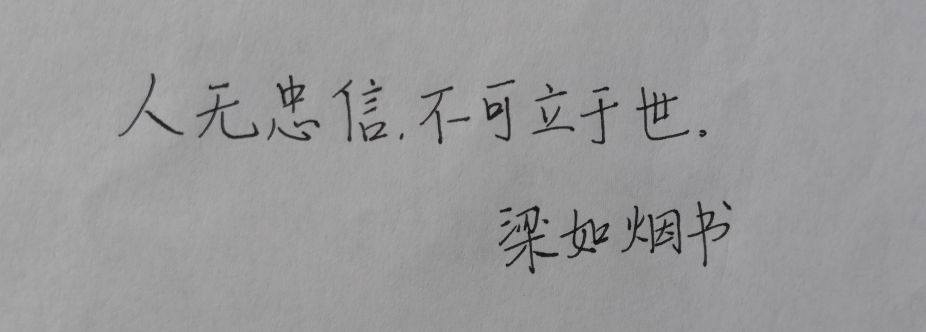 人无忠信,不可立于世。
梁如烟书